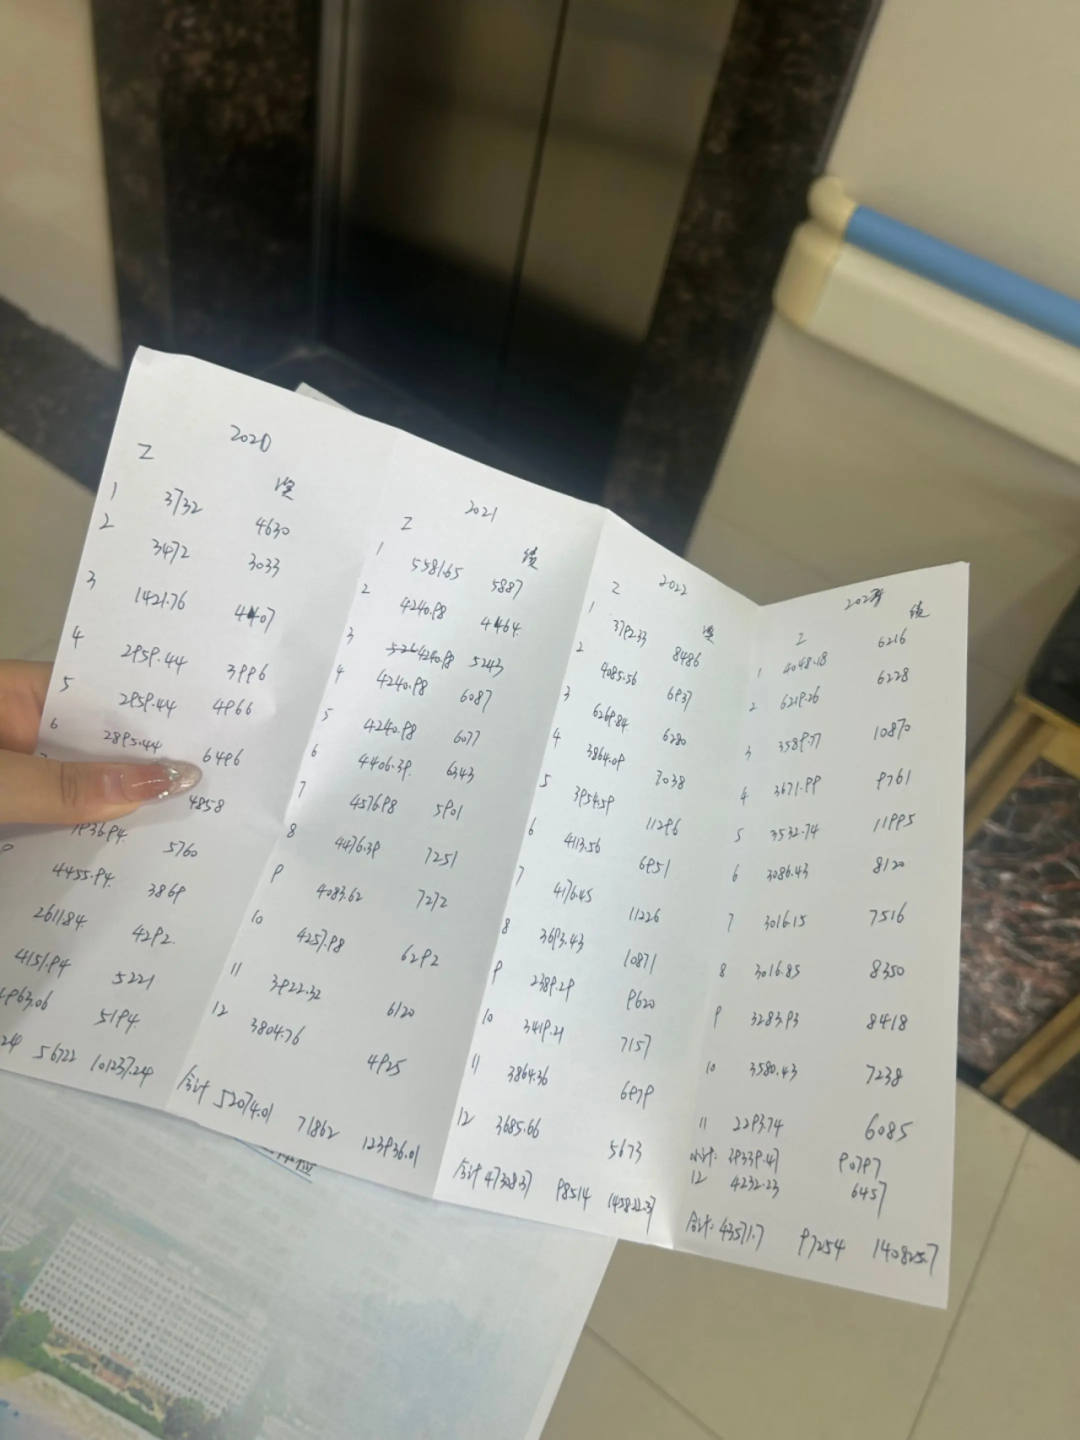 2020
工 绩
1 3732 4630
2 3472 3033
3 1421.76 4407
4 2959.44 3996
5 2959.44 4966
6 2895.44 6496
4858
1936.94 5760
9 4455.94 3869
2611.84 4292
4151.94 5221
4963.06 5194
24 56722 101237.24
2021
工 绩
1 5581.65 5887
2 4240.98 4464
3 4240.98 5243
4 4240.98 6087
5 4240.98 6077
6 4406.39 6343
7 4576.98 5901
8 4476.39 7251
9 4083.62 7272
10 4257.98 6292
11 3922.32 6120
12 3804.76 4925
合计 52074.01 71862 123936.01
2022
工 绩
1 3792.33 8486
2 4085.56 6937
3 6269.84 6280
4 3864.09 7038
5 3954.59 11296
6 4113.56 6951
7 4176.45 11226
8 3693.43 10871
9 2389.29 9620
10 3419.21 7157
11 3864.36 6979
12 3685.66 5673
合计 47328.37 98514 145822.37
2023
工 绩
1 4048.18 6216
2 6219.26 6228
3 3589.77 10870
4 3671.99 9761
5 3532.74 11995
6 3086.43 8120
7 3016.15 7516
8 3016.85 8350
9 3283.93 8418
10 3580.43 7238
11 2293.74 6085
小计: 39339.47 90797
12 4232.23 6457
合计: 43571.7 97254 140825.7